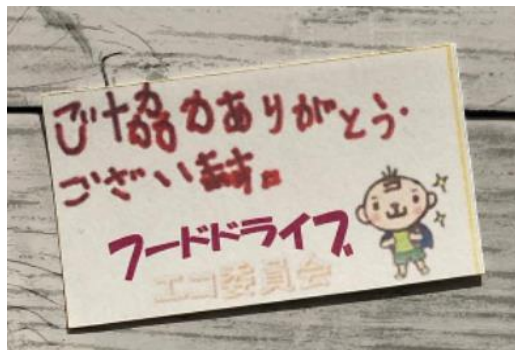 ご協力ありがとう
ございます。
フードドライブ
エコ委員会